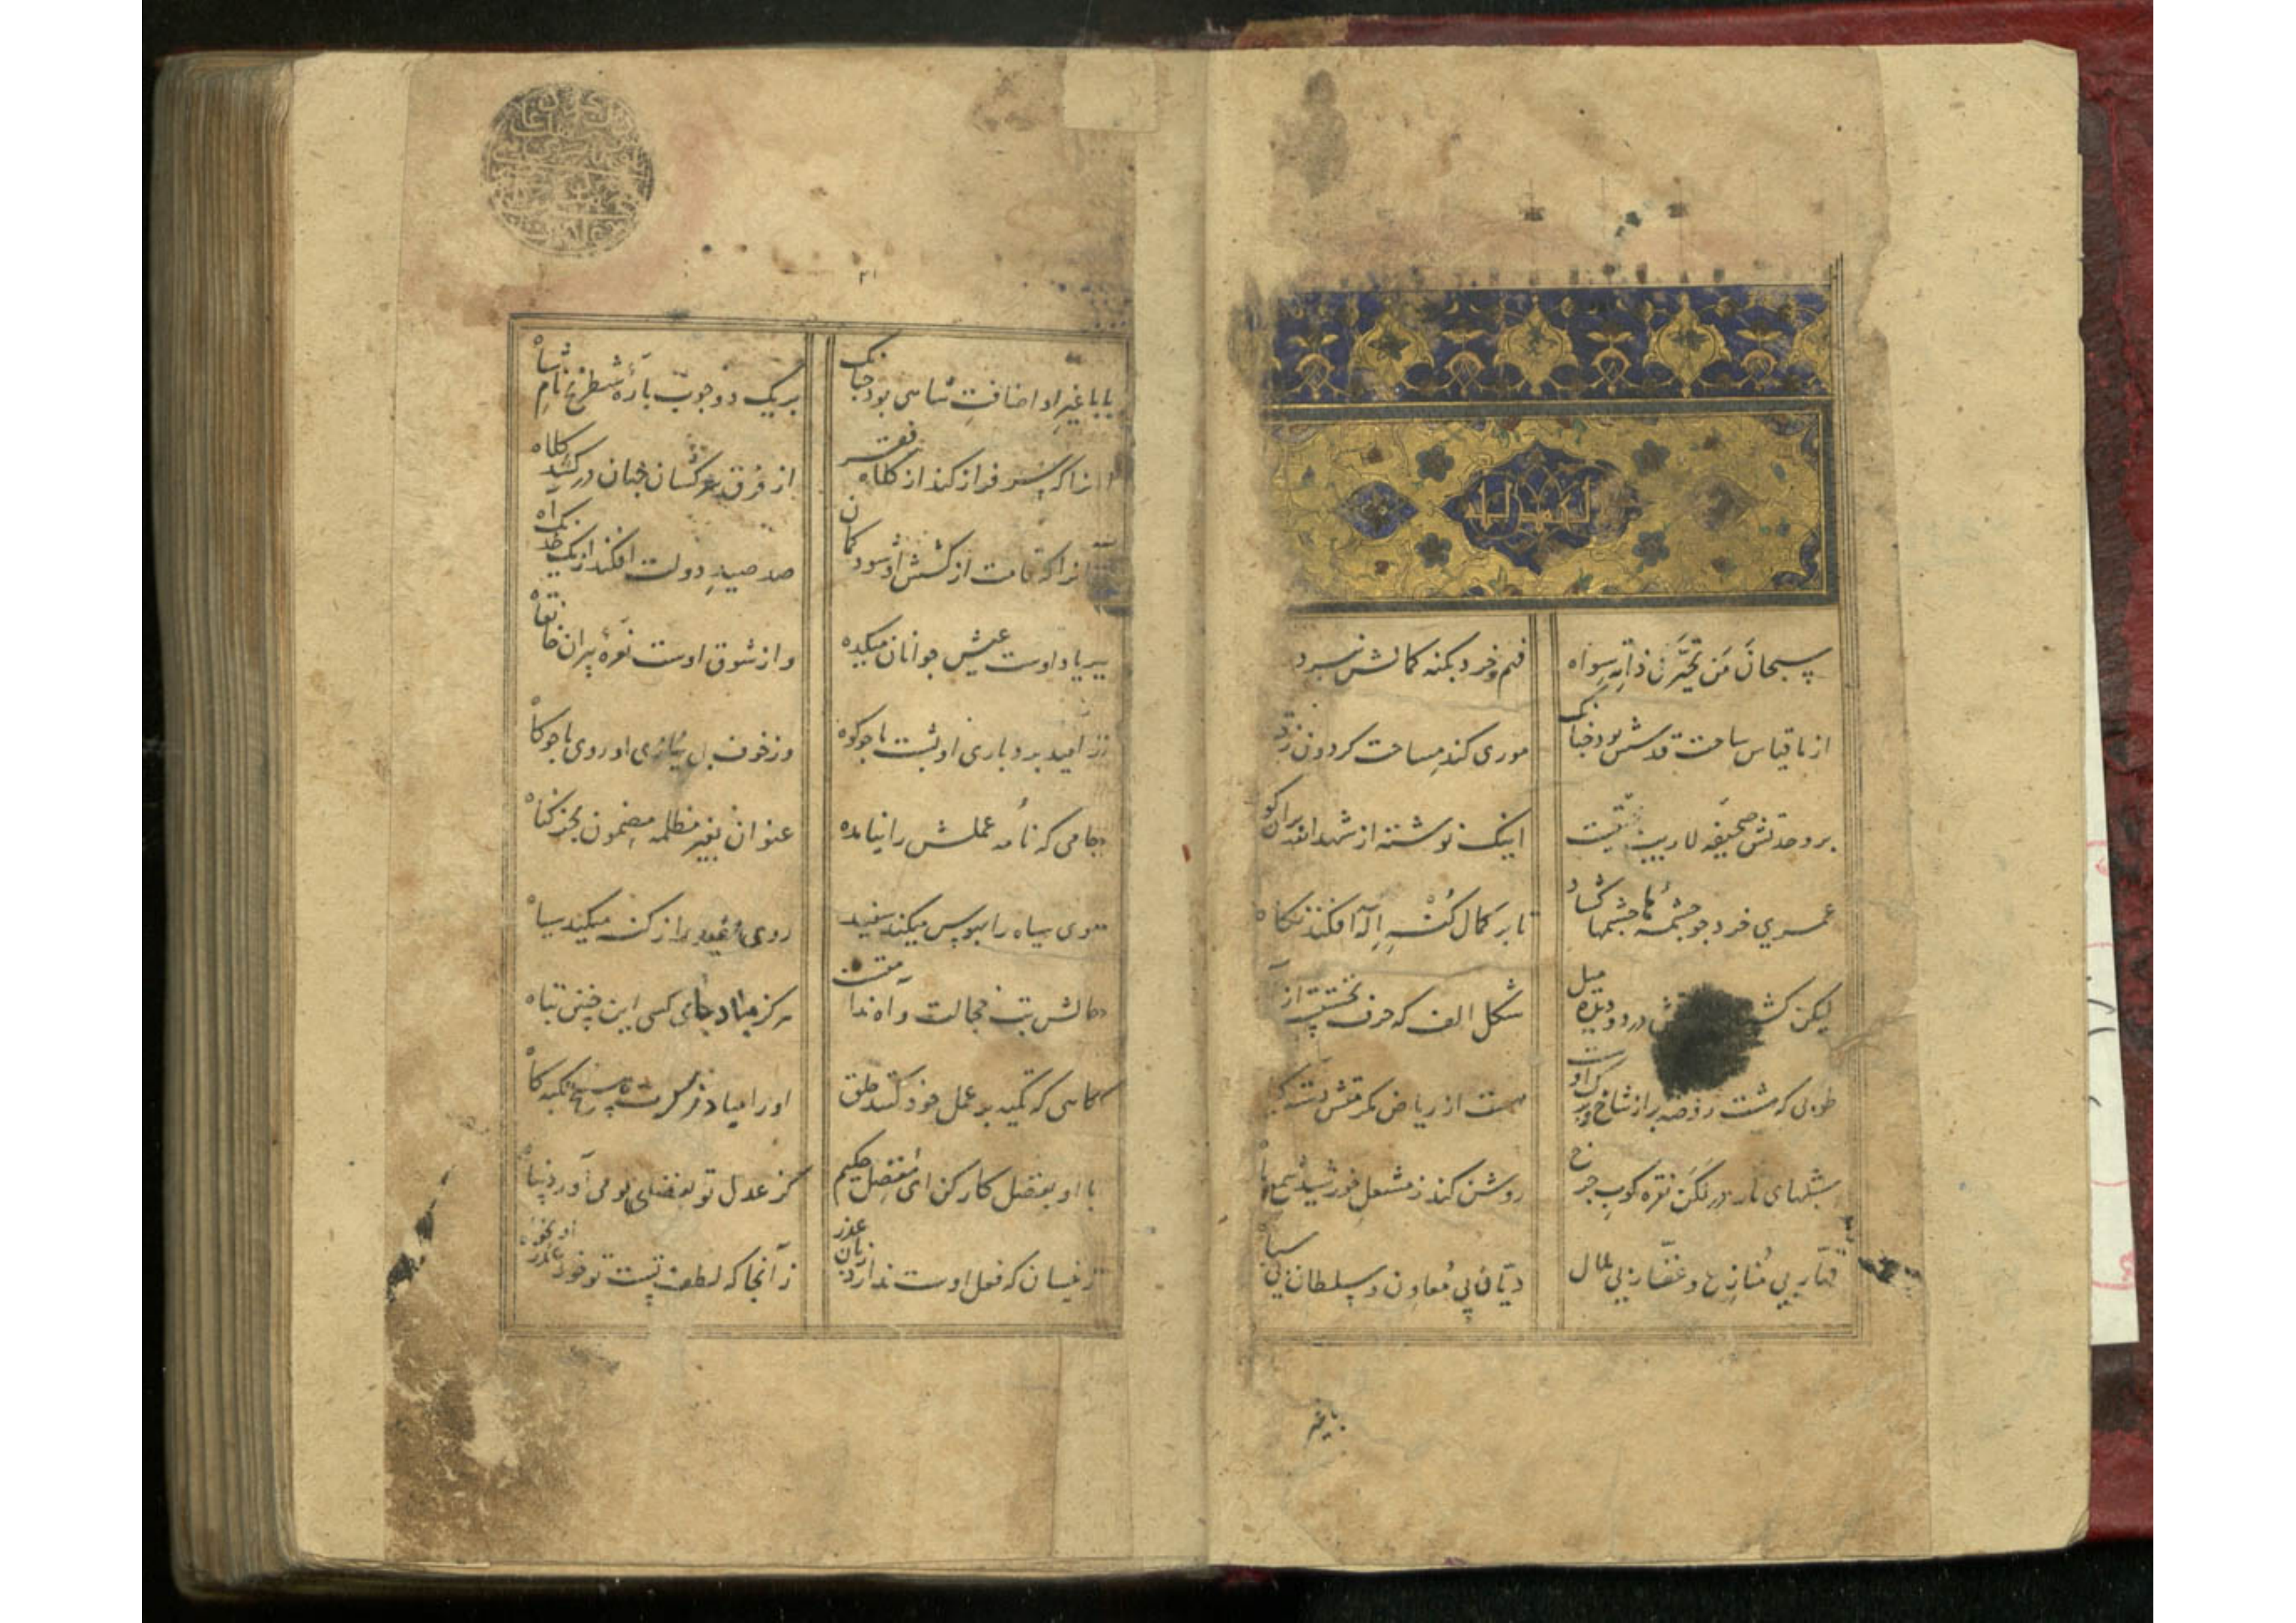 سبحان من تحیر فی ذاته سواه
فهم و خرد بکنه کمالش نبرد
از ما قیاس ساحت قدسش بود چنانک
موری کند مساحت گردون ز
بر وحدتش صحیفه لاریب
اینک نوشته از شهدالله بران
عمری خرد چو چشمه‌ها چشمها گشاد
تا بر کمال کنه اله افکند نگاه
لیکن کشید در دو دیده میل
شکل الف که حرف نخستست از
طوبی که هشت روضه پر از شاخ و برگ اوست
هست از ریاض مکرمتش
شبهای تار در لگن نقره کوب چرخ
روشن کند ز مشعل خورشید شمع
قهار بی منازع و غفار بی ملال
دیان بی معاون و سلطان بی سپاه
با غیر
۲۱
با غیر او اضافت شاهی بود چنانک
بر یک دو چوب پاره شطرنج نام شاه
آنرا که سر فراز کند از کلاه فقر
از فرق سرکشان جهان در کشد کلاه
آنرا که قامت از کشش او شود کمان
صد صید دولت افکند از یک خدنگ آه
بر یاد اوست عیش جوانان میکده
وز شوق اوست نعره پیران خانقاه
ز امید بردباری او پشت ما چو کوه
وز خوف بی نیازی او روی ما چو کاه
جامی که نامه عملش را نیامده
عنوان بغیر مظلمه مضمون بجز گناه
موی سیاه را بهوس میکند سفید
روی سفید را ز گنه میکند سیاه
حالش تبه ز خجالت و آه ندامتست
هرگز مباد حال کسی این چنین تباه
گاهی که تکیه بر عمل خود کنند خلق
او را مباد جز کرمت هیچ تکیه گاه
با او بفضل کار کن ای مفضل حکیم
کز عدل تو بفضل تو می آورد پناه
ز انسان که فعل اوست ندارد زبان عذر
ز آنجا که لطف تست تو خود عذر او بخواه